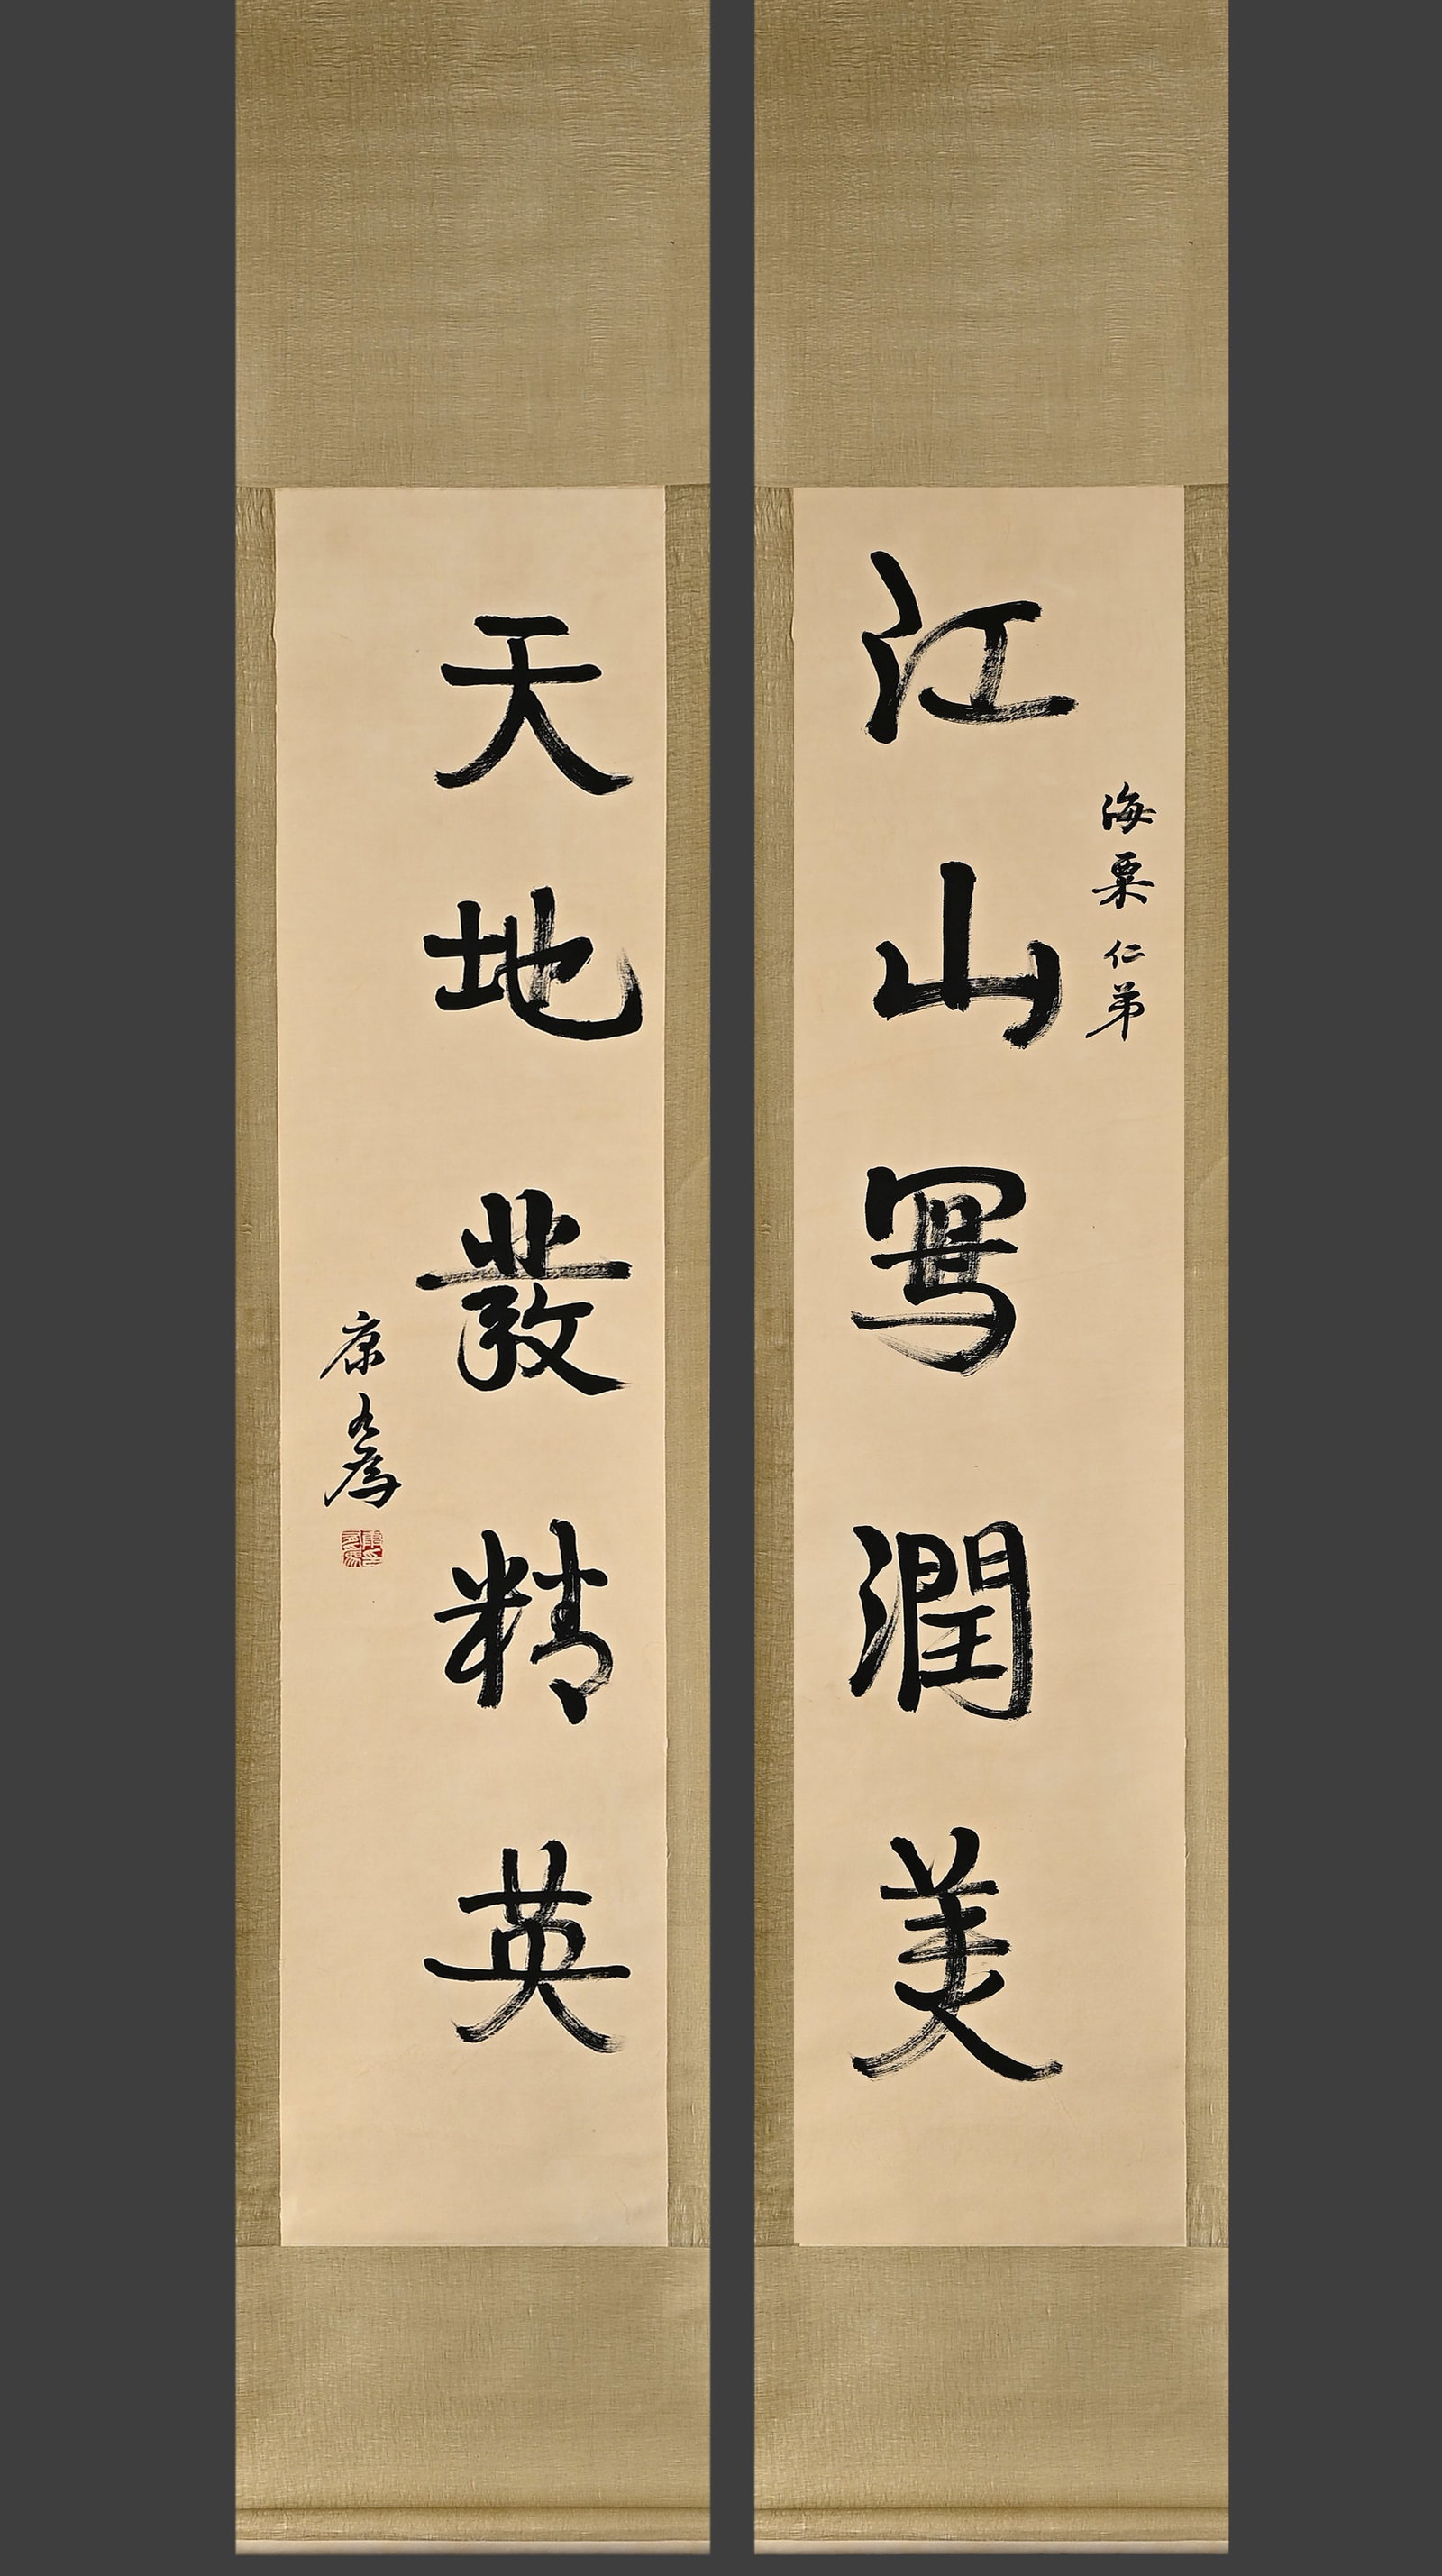 海粟仁弟
江山寫潤美
天地發精英
康有為